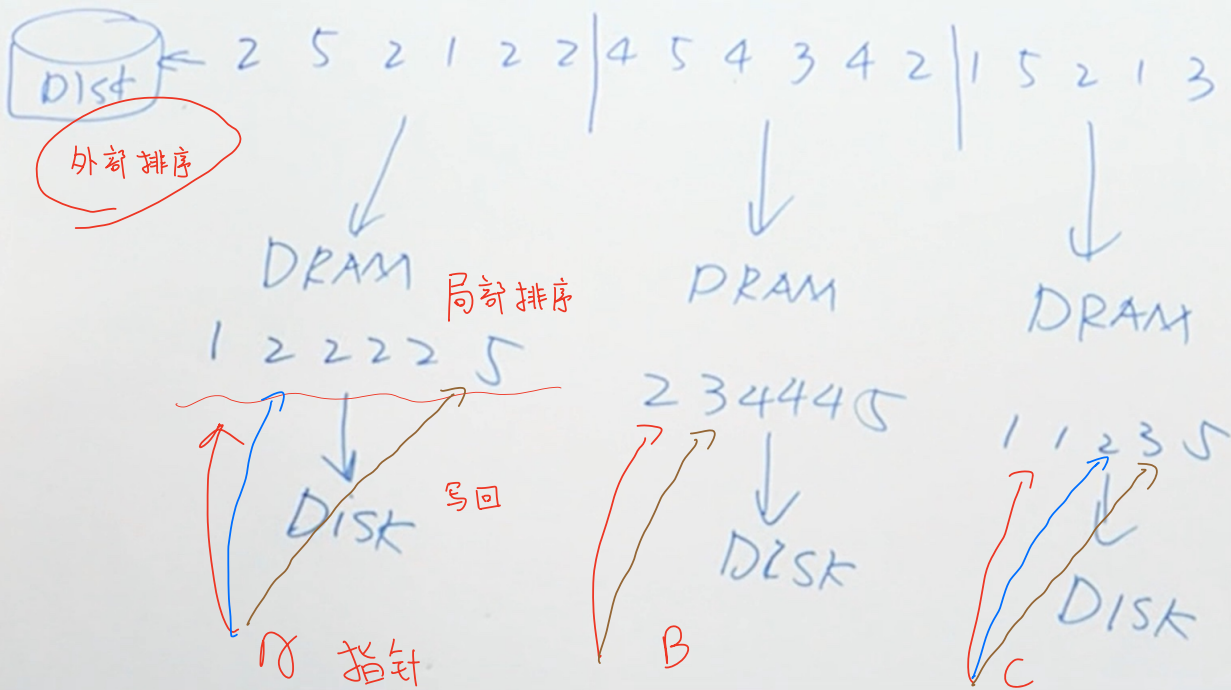 DISK ← 2 5 2 1 2 2 | 4 5 4 3 4 2 | 1 5 2 1 3
外部排序
DRAM DRAM DRAM
局部排序
1 2 2 2 2 5
2 3 4 4 4 5
1 1 2 3 5
写回
DISK DISK DISK
指针 B C